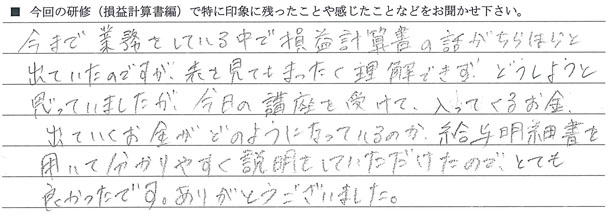 ■ 今回の研修（損益計算書編）で特に印象に残ったことや感じたことなどをお聞かせ下さい。
今まで業務をしている中で損益計算書の話がちらほらと
出ていたのですが、表を見てもまったく理解できず、どうしようと
思っていましたが、今日の講座を受けて、入ってくるお金、
出ていくお金がどのようになっているのか、給与明細書を
用いて分かりやすく説明をしていただけたので、とても
良かったです。ありがとうございました。